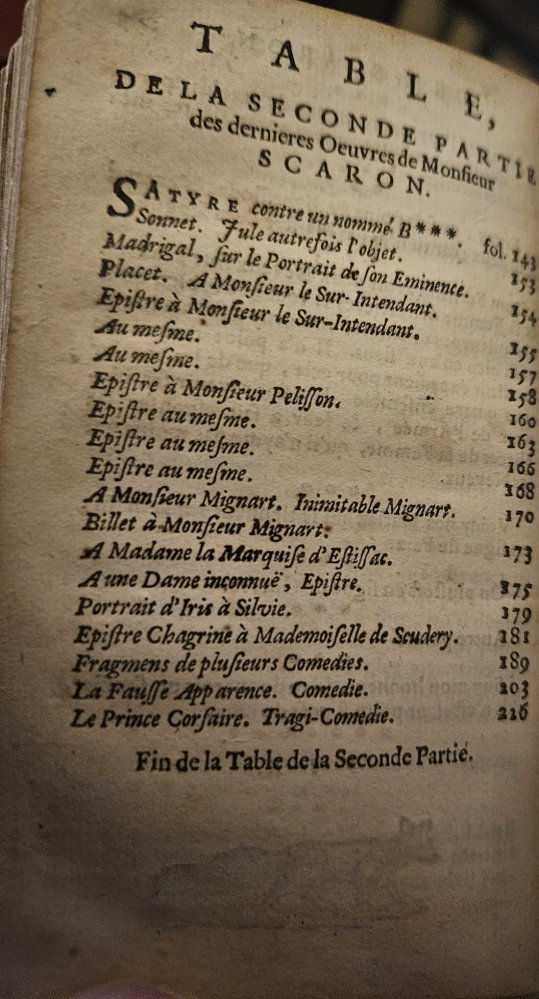 TABLE,
DE LA SECONDE PARTIE
des dernieres Oeuvres de Monſieur
SCARON.
SATYRE contre un nommé B***. fol. 143
Sonnet. Jule autrefois l'objet. 153
Madrigal, ſur le Portrait de ſon Eminence. 154
Placet. A Monſieur le Sur-Intendant.
Epiſtre à Monſieur le Sur-Intendant. 155
Au meſme. 157
Au meſme. 158
Epiſtre à Monſieur Peliſſon. 160
Epiſtre au meſme. 163
Epiſtre au meſme. 166
Epiſtre au meſme. 168
A Monſieur Mignart. Inimitable Mignart. 170
Billet à Monſieur Mignart.
A Madame la Marquiſe d'Eſtiſſac. 173
A une Dame inconnuë, Epiſtre. 175
Portrait d'Iris à Silvie. 179
Epiſtre Chagrine à Mademoiſelle de Scudery. 181
Fragmens de pluſieurs Comedies. 189
La Fauſſe Apparence. Comedie. 203
Le Prince Corſaire. Tragi-Comedie. 216
Fin de la Table de la Seconde Partie.